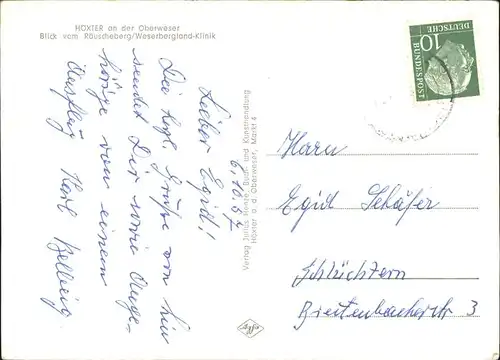 HÖXTER an der Oberweser
Blick vom Räuscheberg/Weserbergland-Klinik
6.10.57
Lieber Egid!
Die herzl. Grüße von hin
sendet Dir sowie Ange-
hörige von einem
Ausflug Karl
Verlag Julius Henze, Buch- und Kunsthandlung
Höxter a. d. Oberweser, Markt 4
DEUTSCHE
BUNDESPOST
10
Herrn
Egid Schäfer
Schlüchtern
Breitenbacherstr 3